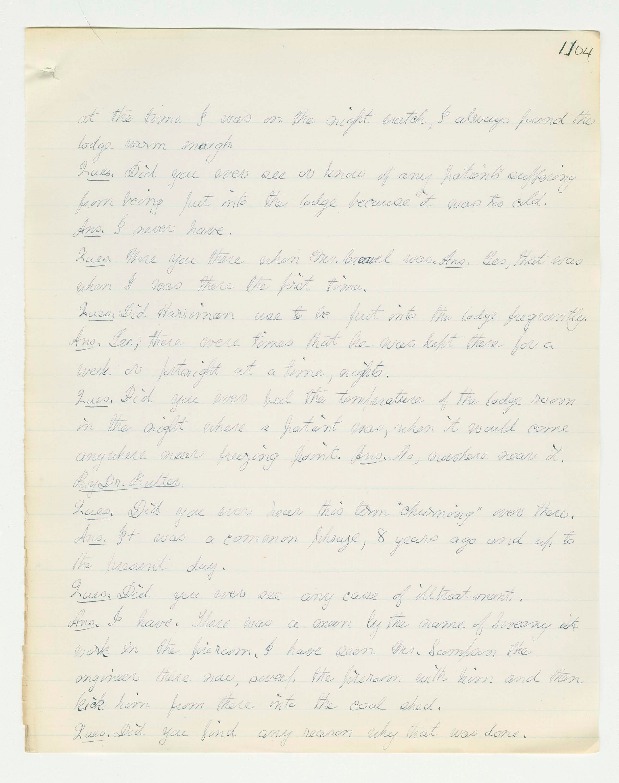 1104
at the time I was on the night watch, I always found the
lodge warm enough
Ques. Did you ever see or know of any patients suffering
from being put into the lodge because it was too cold.
Ans. I never have.
Ques. Were you there when Mr. was. Ans. Yes, that was
when I was there the first time.
Ques. Did Harriman use to be put into the lodge frequently.
Ans. Yes, there were times that he was kept there for a
week or fortnight at a time, nights.
Ques. Did you ever feel the temperature of the lodge room
in the night where a patient was, when it would come
anywhere near freezing point. Ans. No, nowhere near it.
By Dr.
Ques. Did you ever hear this term "churning" over there.
Ans. It was a common phrase, 8 years ago and up to
the present day.
Ques. Did you ever see any case of illtreatment.
Ans. I have. There was a man by the name of Sweeny at
work in the fireroom, I have seen Mr. the
engineer there now, sweep the fireroom with him and then
kick him from there into the coal shed.
Ques. Did you find any reason why that was done.